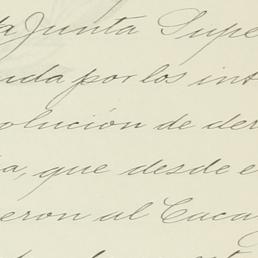 la Junta Supe
nida por los int
olución de der
a, que desde e
eron al Caca